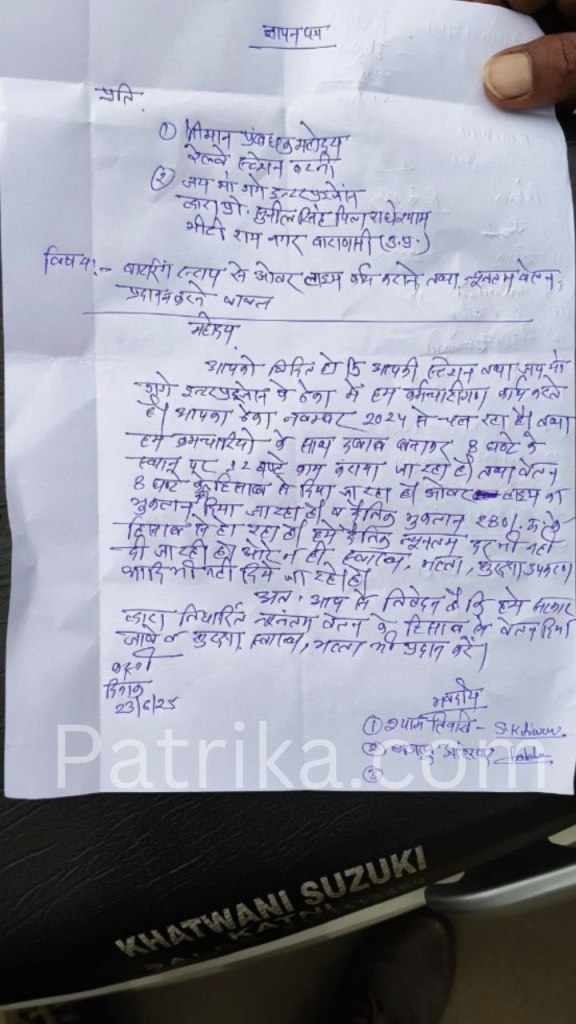 ज्ञापन पत्र
प्रति,
① श्रीमान प्रबंधक महोदय
रेल्वे स्टेशन कटनी
② जय मां गंगे इन्टरप्राईजेस
द्वारा प्रो. सुनील सिंह पिता राधेश्याम
भीटी राम नगर वाराणसी (उ.प्र.)
विषय:- स्टाप से ओवर टाइम कार्य कराने तथा न्यूनतम वेतन
प्रदान करने बाबत
महोदय,
आपको विदित हो कि आपकी स्टेशन तथा जय मां
गंगे इन्टरप्राईजेस के ठेका में हम कर्मचारीगण कार्य करते
है। आपका ठेका नवम्बर 2024 से चल रहा है। तथा
हम कर्मचारियो के साथ दबाव बनाकर 8 घण्टे के
स्थान पर 12 घण्टे काम कराया जा रहा है। तथा वेतन
8 घण्टे के हिसाब से दिया जा रहा है। ओवर टाइम का
भुगतान दिया जा रहा है। व दैनिक भुगतान 280/- रू. के
हिसाब हमे दैनिक न्यूनतम दर भी नही
दी जा रही है। और न ही स्वास्थ, भत्ता, सुरक्षा उपकरण
आदि भी नही दिये जा रहे है।
अत: आप से निवेदन है कि हमे सरकार
द्वारा निर्धारित न्यूनतम वेतन के हिसाब से वेतन दिया
जावे व सुरक्षा स्वास्थ, भत्ता भी प्रदान करें।
कटनी
दिनांक
23/6/25
भवदीय
① श्याम तिवारी - S.K.tiwari
②
③
Patrika.com
KHATWANI SUZUKI
KATNI